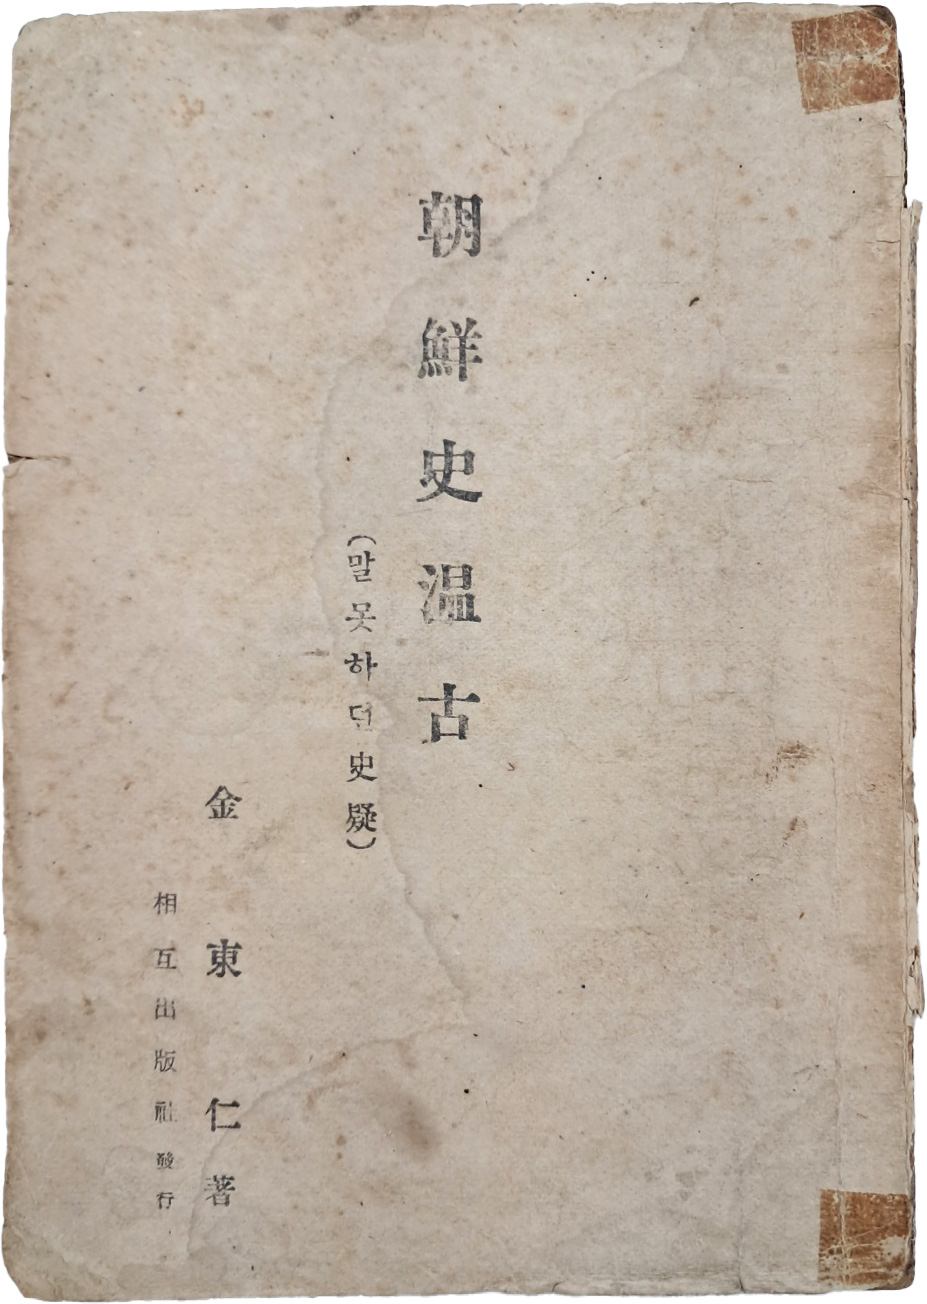 朝鮮史温古
(말못하던史疑)
金東仁著
相互出版社發行